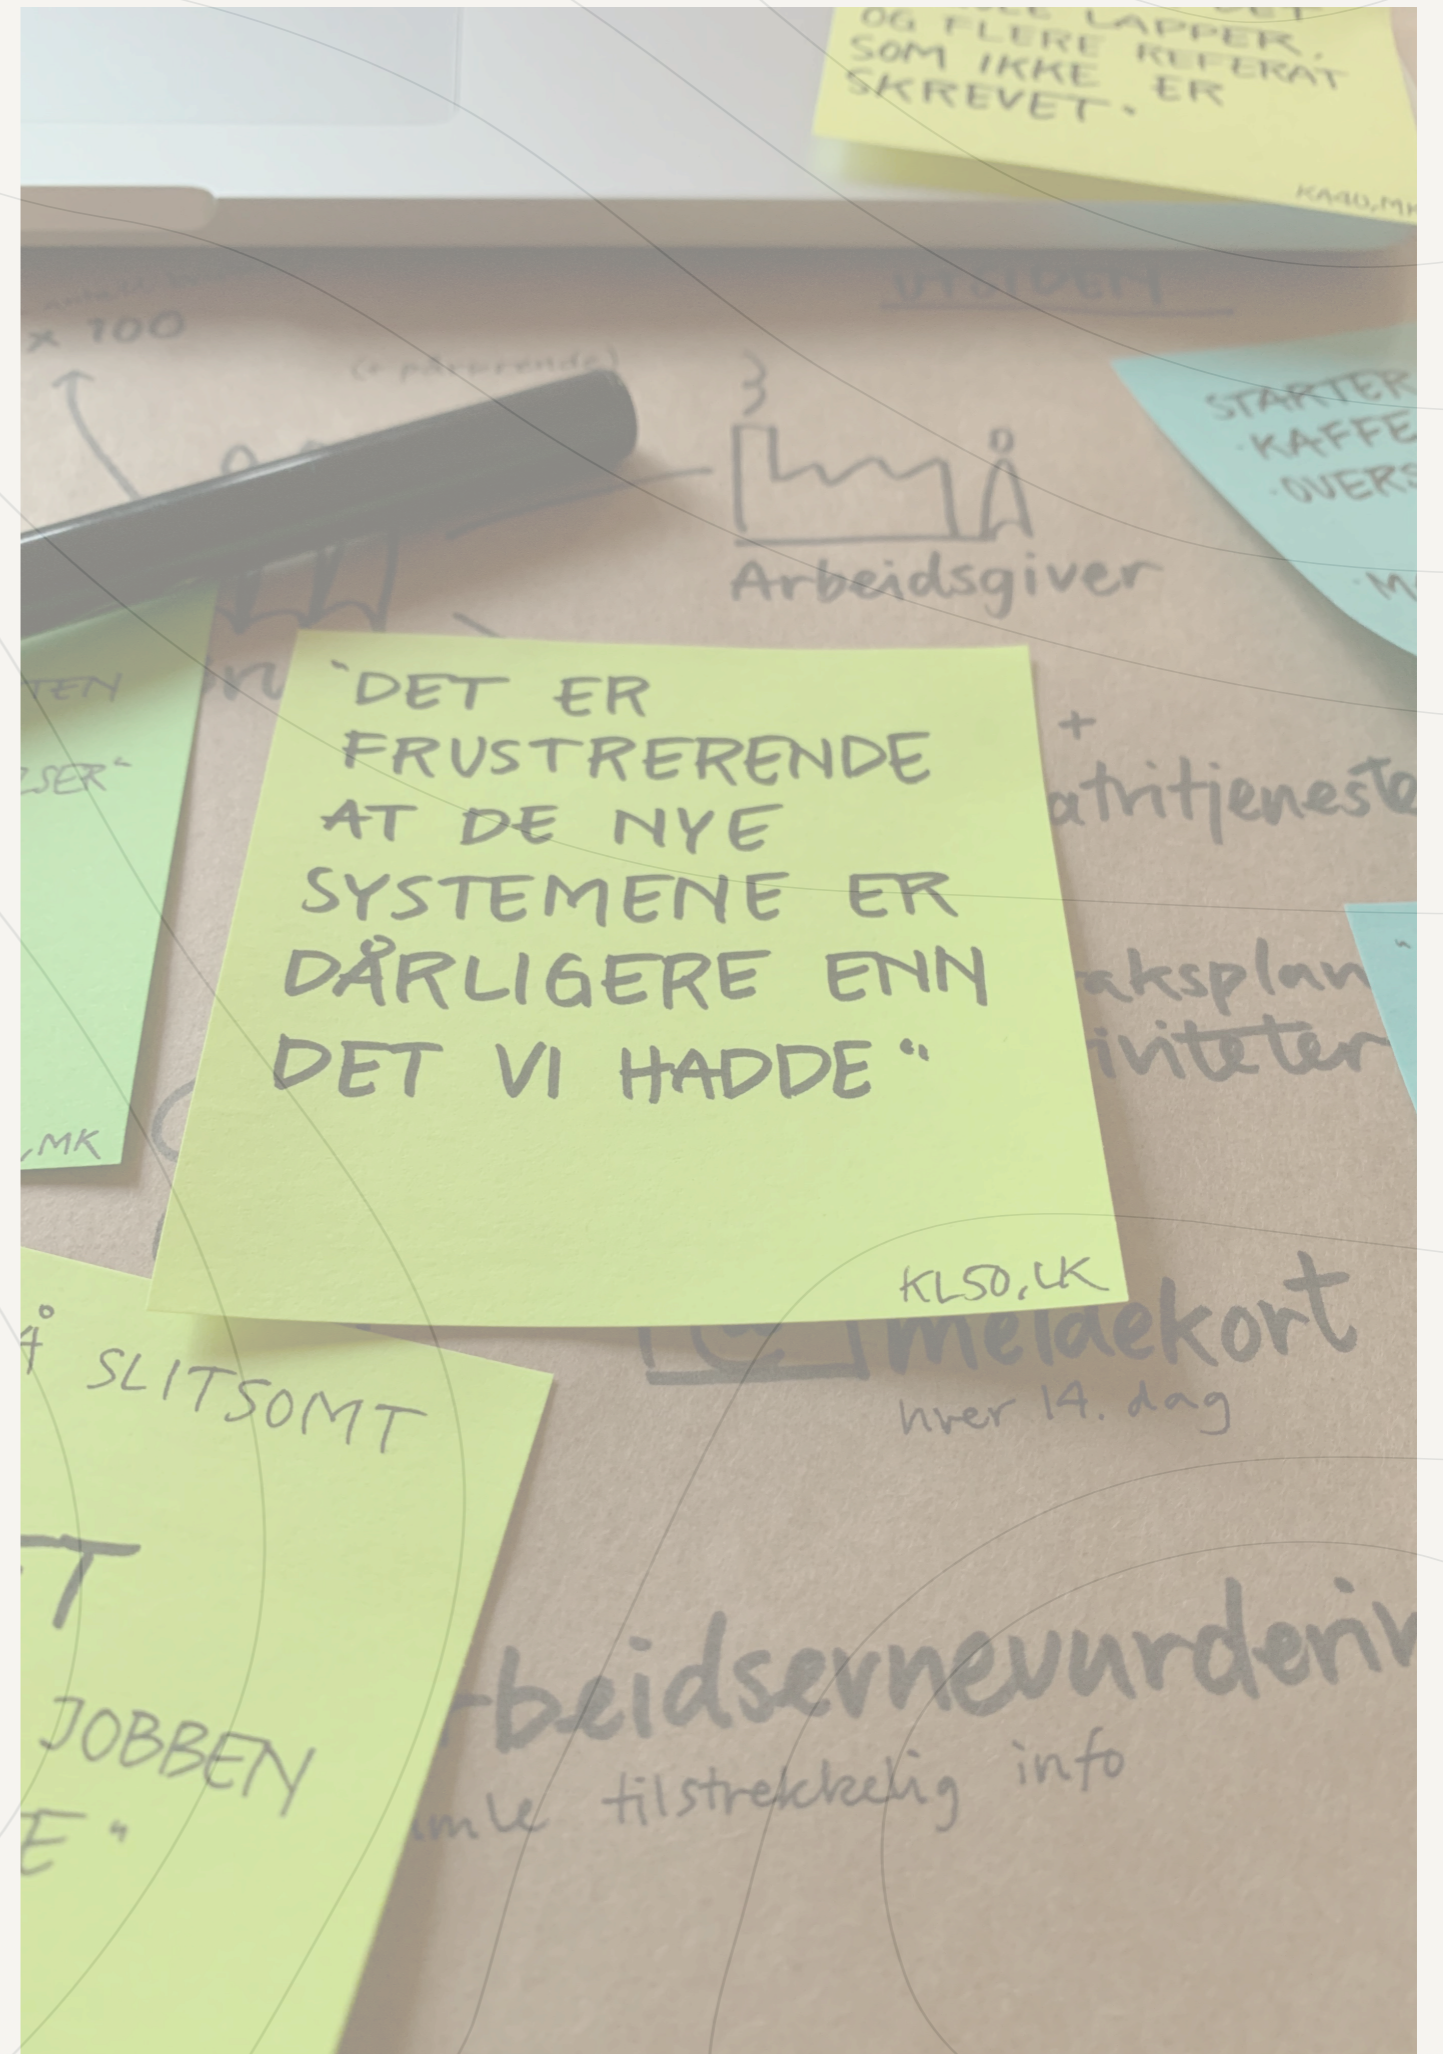 LAPPER.
OG FLERE REFERAT
SOM IKKE ER
SKREVET.
KA40,MK
UTSIDEN
x 100
(+ pårørende)
STARTER
·KAFFE
·OVERS
Arbeidsgiver
TEN
LSER“
,MK
"DET ER
FRUSTRERENDE
AT DE NYE
SYSTEMENE ER
DÅRLIGERE ENN
DET VI HADDE“
KL50,LK
+
atritjeneste
aksplan
iviteter
meldekort
hver 14. dag
Å SLITSOMT
T
JOBBEN
E"
beidsevnevurderin
mle tilstrekkelig info